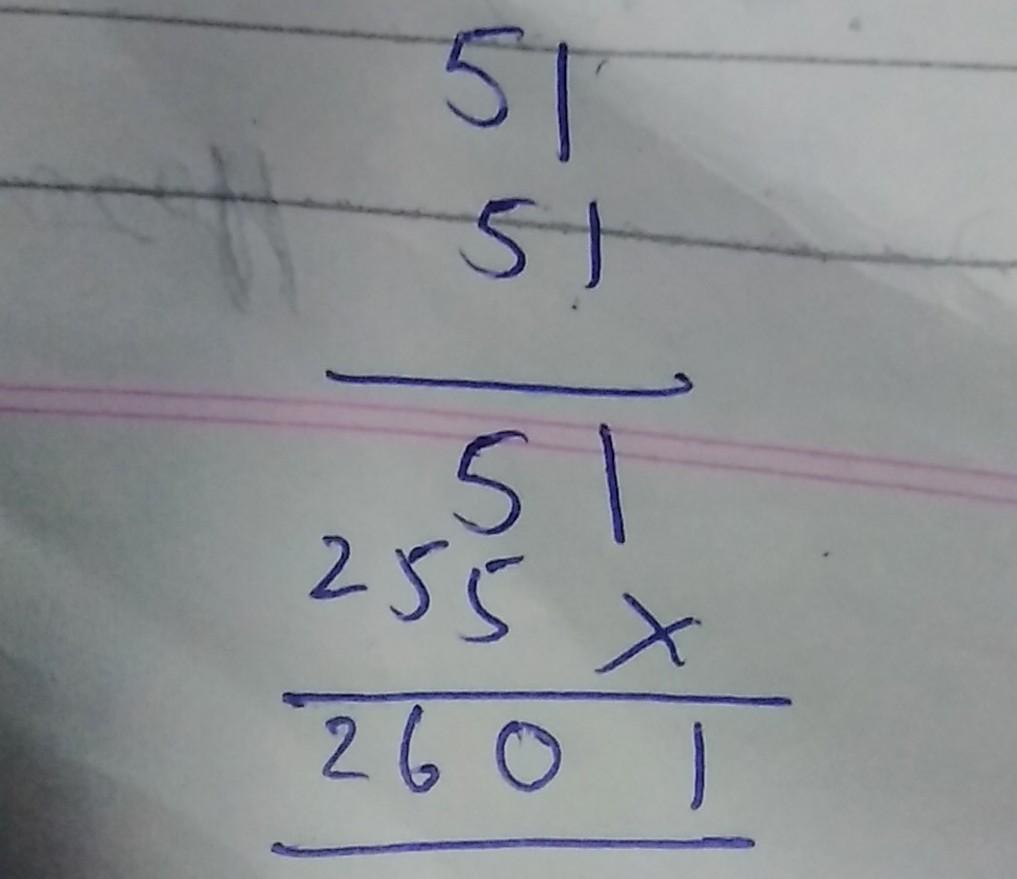 51
51
51
255 x
2601